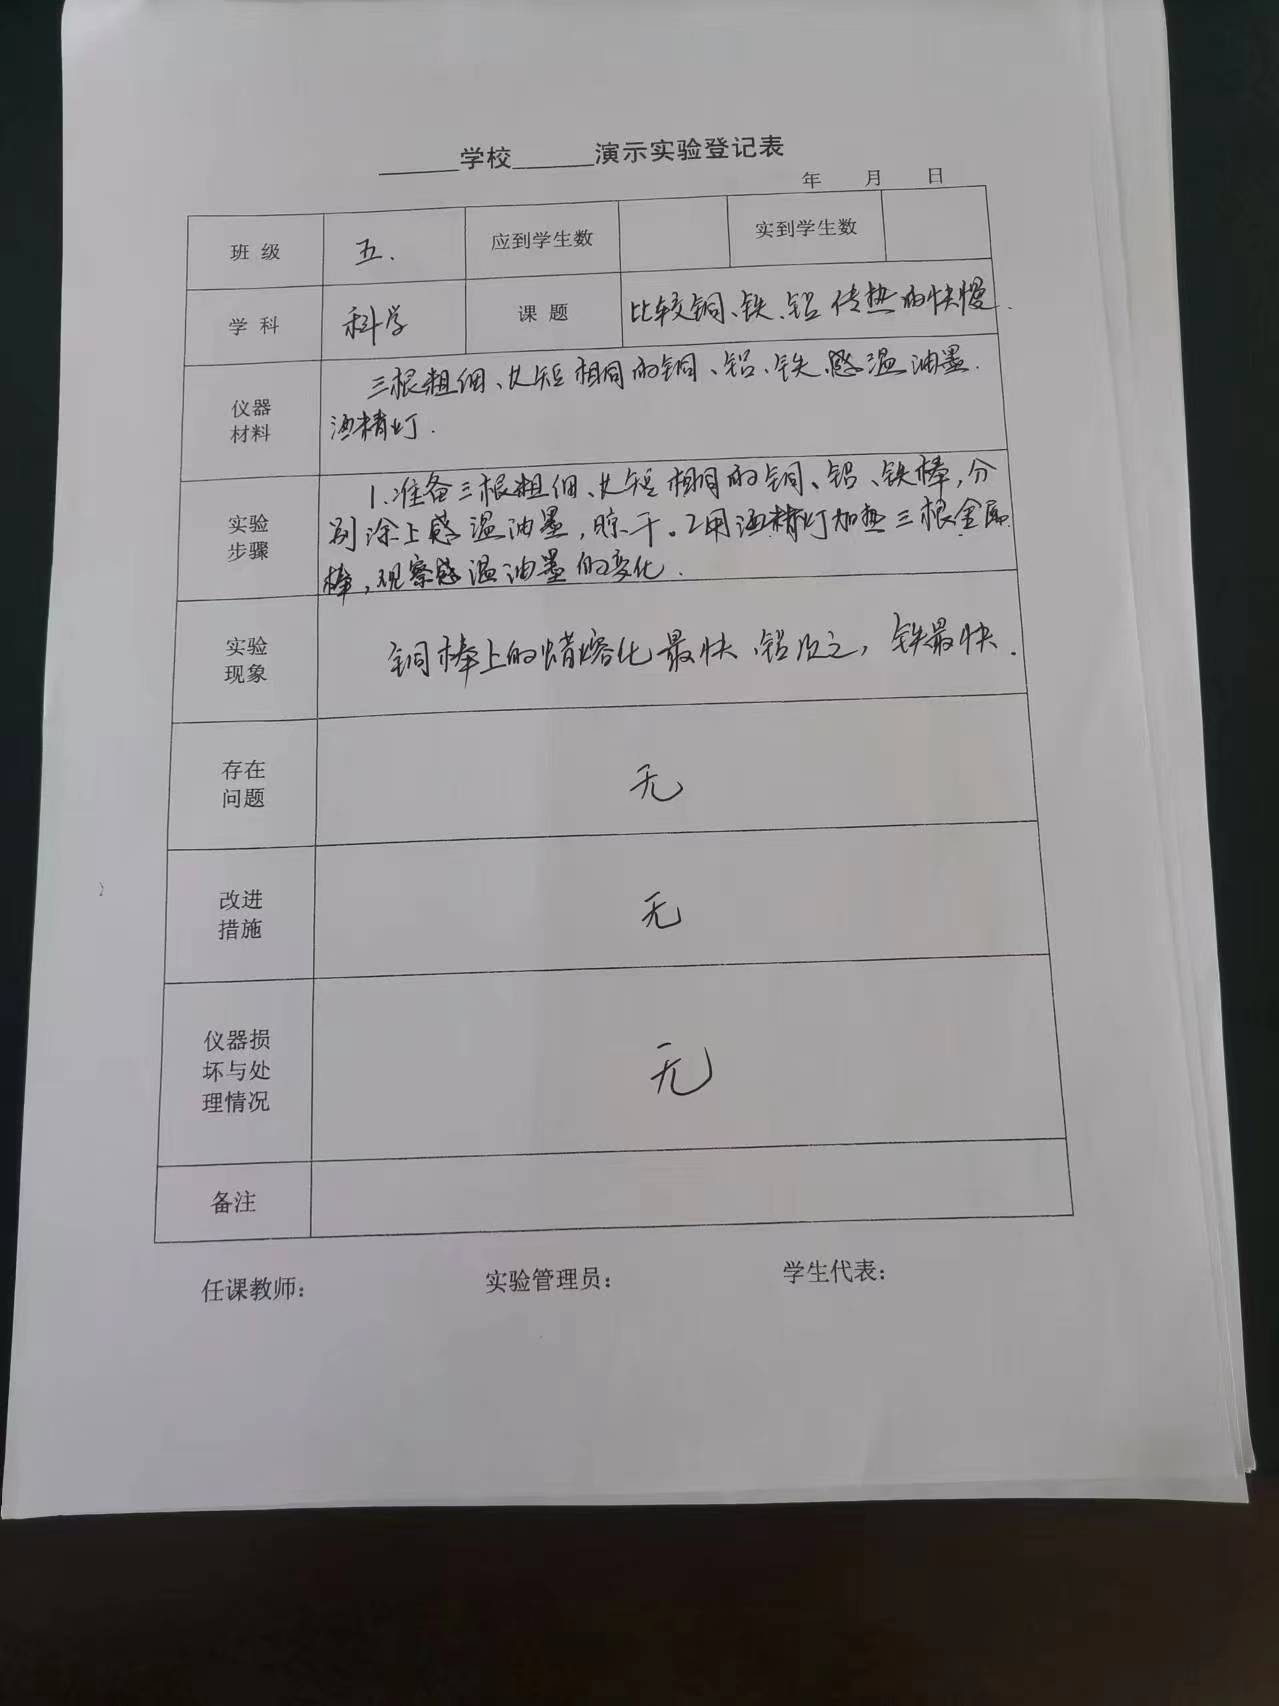 ______学校______演示实验登记表
年 月 日
班 级 五. 应到学生数 实到学生数
学 科 科学 课 题 比较铜、铁、铝传热的快慢.
仪器
材料
三根粗细、长短相同的铜、铝、铁、感温油墨.
酒精灯.
实验
步骤
1.准备三根粗细、长短相同的铜、铝、铁棒,分
别涂上感温油墨,晾干。2用酒精灯加热三根金属
棒,观察感温油墨的变化.
实验
现象
铜棒上的蜡熔化最快、铝次之,铁最快.
存在
问题
无
改进
措施
无
仪器损
坏与处
理情况
无
备注
任课教师: 实验管理员: 学生代表: